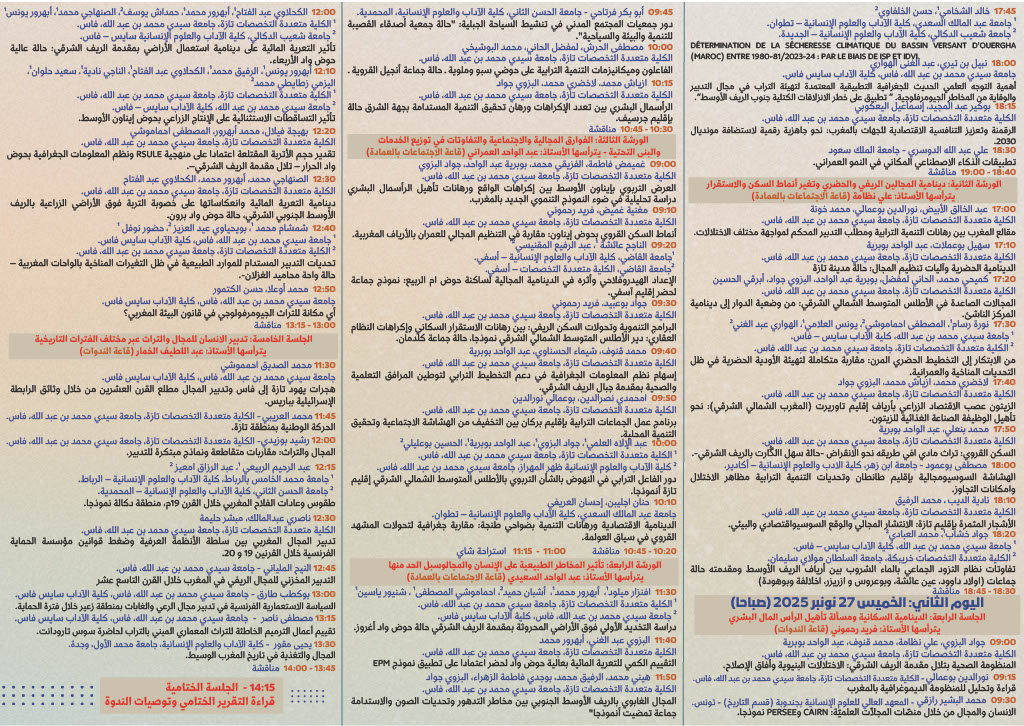 17:45 خالد الشخامي¹، حسن الخلفاوي²
¹ جامعة عبد المالك السعدي، كلية الآداب والعلوم الإنسانية – تطوان.
² جامعة شعيب الدكالي، كلية الآداب والعلوم الإنسانية – الجديدة.
DÉTERMINATION DE LA SÉCHERESSE CLIMATIQUE DU BASSIN VERSANT D'OUERGHA
(MAROC) ENTRE 1980-81/2023-24 : PAR LE BIAIS DE ISP ET IDVJ.
18:00 نبيل بن تيري، عبد الغني الهواري
جامعة سيدي محمد بن عبد الله، كلية الآداب سايس فاس.
أهمية التوجه العلمي الحديث للجغرافية التطبيقية المعتمدة لتهيئة التراب في مجال التدبير
والوقاية من المخاطر الجيومرفلوجية. " تطبيق على خطر الانزلاقات الكتلية جنوب الريف الأوسط".
18:15 بوكير عبد المجيد، إسماعيل اليعكوبي
الكلية متعددة التخصصات تازة، جامعة سيدي محمد بن عبد الله، فاس.
الرقمنة وتعزيز التنافسية الاقتصادية للجهات بالمغرب: نحو جاهزية رقمية لاستضافة مونديال
2030.
18:30 علي عبد الله الدوسري - جامعة الملك سعود
تطبيقات الذكاء الاصطناعي المكاني في النمو العمراني.
18:40 - 19:00 مناقشة
الورشة الثانية: دينامية المجالين الريفي والحضري وتغير أنماط السكن والاستقرار
يترأسها الأستاذ: علي نظامة (قاعة الاجتماعات بالعمادة)
17:00 عبد الخالق الأبيض، نورالدين بوعمالي، محمد خونة
الكلية متعددة التخصصات تازة، جامعة سيدي محمد بن عبد الله، فاس.
مقالع المغرب بين رهانات التنمية الترابية ومطلب التدبير المحكم لمواجهة مختلف الاختلالات.
17:10 سهيل بوعملات، عبد الواحد بوبرية
الكلية متعددة التخصصات تازة، جامعة سيدي محمد بن عبد الله، فاس.
الدينامية الحضرية وآليات تنظيم المجال: حالة مدينة تازة
17:20 كميحي محمد، الحاني لمفضل، بوبرية عبد الواحد، البزوي جواد، أبرقي الحسين
الكلية متعددة التخصصات تازة، جامعة سيدي محمد بن عبد الله، فاس.
المجالات الصاعدة في الأطلس المتوسط الشمالي الشرقي: من وضعية الدوار إلى دينامية
المركز الناشئ.
17:30 نورة رسام¹، المصطفى احماموشي²، يونس العلامي¹، الهواري عبد الغني²
¹ جامعة سيدي محمد بن عبد الله، كلية الآداب سايس – فاس.
² الكلية متعددة التخصصات تازة، جامعة سيدي محمد بن عبد الله، فاس.
من الابتكار إلى التخطيط الحضري المرن: مقاربة متكاملة لتهيئة الأودية الحضرية في ظل
التحديات المناخية والعمرانية.
17:40 لاخضري محمد، ازياش محمد، البزوي جواد
الكلية متعددة التخصصات تازة، جامعة سيدي محمد بن عبد الله، فاس.
الزيتون عصب الاقتصاد الزراعي بأرياف إقليم تاوريرت (المغرب الشمالي الشرقي): نحو
تأهيل الوظيفة الصناعة الغذائية للزيتون.
17:50 محمد بنعلي، عبد الواحد بوبرية
الكلية متعددة التخصصات تازة، جامعة سيدي محمد بن عبد الله، فاس.
السكن القروي: تراث مادي افي طريقه نحو الانقراض -حالة سهل الكارت بالريف الشرقي-.
18:00 مصطفى بوعمود - جامعة ابن زهر، كلية الادب والعلوم الإنسانية – أكادير.
الهشاشة السوسيومجالية بإقليم طانطان وتحديات التنمية الترابية مظاهر الاختلال
وإمكانات التجاوز.
18:10 نادية الديب ، محمد الرفيق
الكلية متعددة التخصصات تازة، جامعة سيدي محمد بن عبد الله، فاس.
الأشجار المثمرة بإقليم تازة: الانتشار المجالي والوقع السوسيواقتصادي والبيئي.
18:20 جواد خشاب¹، محمد العبادي²
¹ جامعة سيدي محمد بن عبد الله، كلية الآداب سايس – فاس.
² الكلية متعددة التخصصات خريبكة، جامعة السلطان مولاي سليمان.
تفاوتات نظام التزود الجماعي بالماء الشروب بين أرياف الريف الأوسط ومقدمته حالة
جماعات (اولاد داوود، عين عائشة، وبوعروس و ازريزر، اخلالفة وبوهودة)
18:30 - 18:45 مناقشة
اليوم الثاني: الخميس 27 نونبر 2025 (صباحا)
الجلسة الرابعة: الدينامية السكانية ومسألة تأهيل الرأس المال البشري
يترأسها الأستاذ: فريد رحموني (قاعة الندوات)
09:00 جواد البزوي، علي نظامة، محمد فنوف، عبد الواحد بوبرية
الكلية متعددة التخصصات تازة، جامعة سيدي محمد بن عبد الله، فاس.
المنظومة الصحية بتلال مقدمة الريف الشرقي: الاختلالات البنيوية وآفاق الإصلاح.
09:15 نورالدين بوعمالي - الكلية متعددة التخصصات تازة، جامعة سيدي محمد بن عبد الله، فاس.
قراءة وتحليل للمنظومة الديموغرافية بالمغرب
09:30 محمد البشير رازقي - المعهد العالي للعلوم الإنسانية بجندوبة (قسم التاريخ) - تونس.
الانسان والمجال من خلال منصّات المجلاّت العلميّة: CAIRN وPERSEE نموذجا.
09:45 أبو بكر فرتاحي - جامعة الحسن الثاني، كلية الآداب والعلوم الإنسانية، المحمدية.
دور جمعيات المجتمع المدني في تنشيط السياحة الجبلية: "حالة جمعية أصدقاء القصيبة
للتنمية والبيئة والسياحية".
10:00 مصطفى الحرش، لمفضل الحاني، محمد البوشيخي
الكلية متعددة التخصصات تازة، جامعة سيدي محمد بن عبد الله، فاس.
الفاعلون وميكانيزمات التنمية الترابية على حوضي سبو وملوية . حالة جماعة أنجيل القروية .
10:15 ازياش محمد، لاخضري محمد، البزوي جواد
الكلية متعددة التخصصات تازة، جامعة سيدي محمد بن عبد الله، فاس.
الرأسمال البشري بين تعدد الإكراهات ورهان تحقيق التنمية المستدامة بجهة الشرق حالة
بإقليم جرسيف.
10:30 - 10:45 مناقشة
الورشة الثالثة: الفوارق المجالية والاجتماعية والتفاوتات في توزيع الخدمات
والبنى التحتية - يترأسها الأستاذ: عبد الواحد العمراني (قاعة الاجتماعات بالعمادة)
09:00 غميض فاطمة، الفزيقي محمد، بوبرية عبد الواحد، جواد البزوي
الكلية متعددة التخصصات تازة، جامعة سيدي محمد بن عبد الله، فاس.
العرض التربوي بإيناون الأوسط بين إكراهات الواقع ورهانات تأهيل الرأسمال البشري
دراسة تحليلية في ضوء النموذج التنموي الجديد بالمغرب.
09:10 مغنية غميض، فريد رحموني
الكلية متعددة التخصصات تازة، جامعة سيدي محمد بن عبد الله، فاس.
أنماط السكن القروي بحوض إيناون: مقاربة في التنظيم المجالي للعمران بالأرياف المغربية.
09:20 الناجح عائشة¹، عبد الرفيع المقنيسي²
¹جامعة القاضي، كلية الآداب والعلوم الإنسانية – أسفي.
²جامعة القاضي، الكلية متعددة التخصصات – أسفي.
الإعداد الهيدروفلاحي وأثره في الدينامية المجالية لساكنة حوض ام الربيع: نموذج جماعة
لحضر إقليم آسفي.
09:30 جواد بوعبيد، فريد رحموني
الكلية متعددة التخصصات تازة، جامعة سيدي محمد بن عبد الله، فاس.
البرامج التنموية وتحولات السكن الريفي: بين رهانات الاستقرار السكاني وإكراهات النظام
العقاري: دير الأطلس المتوسط الشمالي الشرقي نموذجا، حالة جماعة كلدمان.
09:40 محمد فنوف، شيماء الحسناوي، عبد الواحد بوبرية
الكلية متعددة التخصصات تازة، جامعة سيدي محمد بن عبد الله، فاس.
إسهام نظم المعلومات الجغرافية في دعم التخطيط الترابي لتوطين المرافق التعليمية
والصحية بمقدمة جبال الريف الشرقي.
09:50 امحمدي نصرالدين، بوعمالي نورالدين
الكلية متعددة التخصصات تازة، جامعة سيدي محمد بن عبد الله، فاس.
برنامج عمل الجماعات الترابية بإقليم بركان بين التخفيف من الهشاشة الاجتماعية وتحقيق
التنمية المحلية.
10:00 عبد الإلاه العلمي¹، جواد البزوي¹، عبد الواحد بوبرية¹، الحسين بوعليلي²
¹ الكلية متعددة التخصصات تازة، جامعة سيدي محمد بن عبد الله، فاس.
² كلية الآداب والعلوم الإنسانية ظهر المهراز، جامعة سيدي محمد بن عبد الله، فاس.
دور الفاعل الترابي في النهوض بالشأن التربوي بالأطلس المتوسط الشمالي الشرقي إقليم
تازة أنموذجا.
10:10 حنان اجليين، إحسان العريفي
جامعة عبد المالك السعدي، كلية الآداب والعلوم الإنسانية – تطوان.
الدينامية الاقتصادية ورهانات التنمية بضواحي طنجة: مقاربة جغرافية لتحولات المشهد
القروي في سياق العولمة.
10:20 - 10:45 مناقشة 11:00 - 11:15 استراحة شاي
الورشة الرابعة: تأثير المخاطر الطبيعية على الإنسان والمجال وسبل الحد منها
يترأسها الأستاذ: عبد الواحد السعيدي (قاعة الاجتماعات بالعمادة)
11:30 افنزار ميلود¹، أبهرور محمد¹، أشبان حميد²، احماموشي المصطفى¹، شنيور ياسين¹
¹ الكلية متعددة التخصصات تازة، جامعة سيدي محمد بن عبد الله، فاس.
² جامعة سيدي محمد بن عبد الله، كلية الآداب سايس فاس.
دراسة التخديد الأولي فوق الأراضي المحروثة بمقدمة الريف الشرقي حالة حوض واد أغروز.
11:40 البزوي عبد الغني، أبهرور محمد
الكلية متعددة التخصصات تازة، جامعة سيدي محمد بن عبد الله، فاس.
التقييم الكمي للتعرية المائية بعالية حوض واد لحضر اعتمادا على تطبيق نموذج EPM
11:50 هيني محمد، الرفيق محمد، بوجدي فاطمة الزهراء، البزوي جواد
الكلية متعددة التخصصات تازة، جامعة سيدي محمد بن عبد الله، فاس.
المجال الغابوي بالريف الأوسط الجنوبي بين مخاطر التدهور وتحديات الصون والاستدامة
جماعة تمضيت أنموذجا"
12:00 الكحلاوي عبد الفتاح¹، أبهرور محمد¹، حمداش يوسف²، الصنهاجي محمد¹، أبهرور يونس¹
¹ الكلية متعددة التخصصات تازة، جامعة سيدي محمد بن عبد الله، فاس.
² جامعة شعيب الدكالي، كلية الآداب والعلوم الإنسانية سايس – فاس.
تأثير التعرية المائية على دينامية استعمال الأراضي بمقدمة الريف الشرقي: حالة عالية
حوض واد الأربعاء.
12:10 أبهرور يونس¹، الرفيق محمد¹، الكحلاوي عبد الفتاح¹، الناجي نادية¹، سعيد حلوان¹،
اليزمي زطايطي محمد²
¹ الكلية متعددة التخصصات تازة، جامعة سيدي محمد بن عبد الله، فاس.
² جامعة سيدي محمد بن عبد الله، كلية الآداب سايس – فاس.
تأثير التساقطات الاستثنائية على الإنتاج الزراعي بحوض إيناون الأوسط.
12:20 بهيجة فيلال، محمد أبهرور، المصطفى احماموشي
الكلية متعددة التخصصات تازة، جامعة سيدي محمد بن عبد الله، فاس.
تقدير حجم الأتربة المقتلعة اعتمادا على منهجية RSULE ونظم المعلومات الجغرافية بحوض
واد الحرار – تلال مقدمة الريف الشرقي-.
12:30 الصنهاجي محمد، أبهرور محمد، الكحلاوي عبد الفتاح
الكلية متعددة التخصصات تازة، جامعة سيدي محمد بن عبد الله، فاس.
دينامية التعرية المائية وانعكاساتها على خصوبة التربة فوق الأراضي الزراعية بالريف
الأوسط الجنوبي الشرقي، حالة حوض واد برون.
12:40 شمشام محمد¹ ، بويحياوي عبد العزيز²، حضور نوفل¹
¹ جامعة سيدي محمد بن عبد الله، فاس، كلية الآداب سايس فاس.
² الكلية متعددة التخصصات تازة، جامعة سيدي محمد بن عبد الله، فاس.
تحديات التدبير المستدام للموارد الطبيعية في ظل التغيرات المناخية بالواحات المغربية –
حالة واحة محاميد الغزلان-.
12:50 محمد أوعلا، حسن الكتمور
جامعة سيدي محمد بن عبد الله، فاس، كلية الآداب سايس فاس.
أي مكانة للتراث الجيومرفولوجي في قانون البيئة المغربي؟
13:00 - 13:15 مناقشة
الجلسة الخامسة: تدبير الانسان للمجال والتراث عبر مختلف الفترات التاريخية
يترأسها الأستاذ: عبد اللطيف الخمار (قاعة الندوات)
11:30 محمد الصديق احمموشي
جامعة سيدي محمد بن عبد الله، كلية الآداب سايس فاس.
هجرات يهود تازة إلى فاس وتدبير المجال مطلع القرن العشرين من خلال وثائق الرابطة
الإسرائيلية بباريس.
11:45 محمد العريبي- الكلية متعددة التخصصات تازة، جامعة سيدي محمد بن عبد الله، فاس.
الحركة الوطنية بمنطقة تازة.
12:00 رشيد بوزيدي- الكلية متعددة التخصصات تازة، جامعة سيدي محمد بن عبد الله، فاس.
المجال والتراث: مقاربات متقاطعة ونماذج مبتكرة للتدبير.
12:15 عبد الرحيم الربيعي¹ ، عبد الرزاق امعيز²
¹ جامعة محمد الخامس بالرباط، كلية الآداب والعلوم الإنسانية – الرباط.
² جامعة الحسن الثاني، كلية الآداب والعلوم الإنسانية – المحمدية.
طقوس وعادات الفلاح المغربي خلال القرن 19م، منطقة دكالة نموذجا.
12:30 ناصري عبدالمالك، مبشر حليمة
الكلية متعددة التخصصات تازة، جامعة سيدي محمد بن عبد الله، فاس.
تدبير المجال المغربي بين سلطة الأنظمة العرفية وضغط قوانين مؤسسة الحماية
الفرنسية خلال القرنين 19 و 20.
12:45 النيح الملياني - جامعة سيدي محمد بن عبد الله، كلية الآداب سايس فاس.
التدبير المخزني للمجال الريفي في المغرب خلال القرن التاسع عشر
13:00 بوكطب طارق - جامعة سيدي محمد بن عبد الله، كلية الآداب سايس فاس.
السياسة الاستعمارية الفرنسية في تدبير مجال الرعي والغابات بمنطقة زعير خلال فترة الحماية.
13:15 مصطفى ناصر - جامعة سيدي محمد بن عبد الله، كلية الآداب سايس فاس.
تقييم أعمال الترميم الخاطئة للتراث المعماري المبني بالتراب لحاضرة سوس تارودانت.
13:30 يحيى مقور - كلية الآداب والعلوم الإنسانية، جامعة محمد الأول، وجدة.
المجال والتغذية في تاريخ المغرب الوسيط.
13:45 - 14:00 مناقشة
14:15 - الجلسة الختامية
قراءة التقرير الختامي وتوصيات الندوة